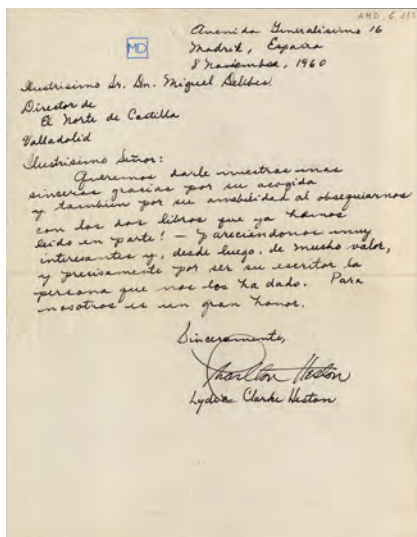 AMD, 6, 1
MD
Avenida Generalísimo 16
Madrid, España
8 Noviembre, 1960
Ilustrísimo Sr. Dn. Miguel Delibes
Director de
El Norte de Castilla
Valladolid
Ilustrísimo Señor:
Queremos darle nuestras mas
sinceras grasias por su acogida
y tambien por su amabilidad al obsequiarnos
con los dos libros que ya hemos
leido en parte! — pareciendonos muy
interesantes y, desde luego, de mucho valor,
y precisamente por ser su escritor la
persona que nos los ha dado. Para
nosotros es un gran honor.
Sinceramente,
Charlton Heston
Lydia Clarke Heston